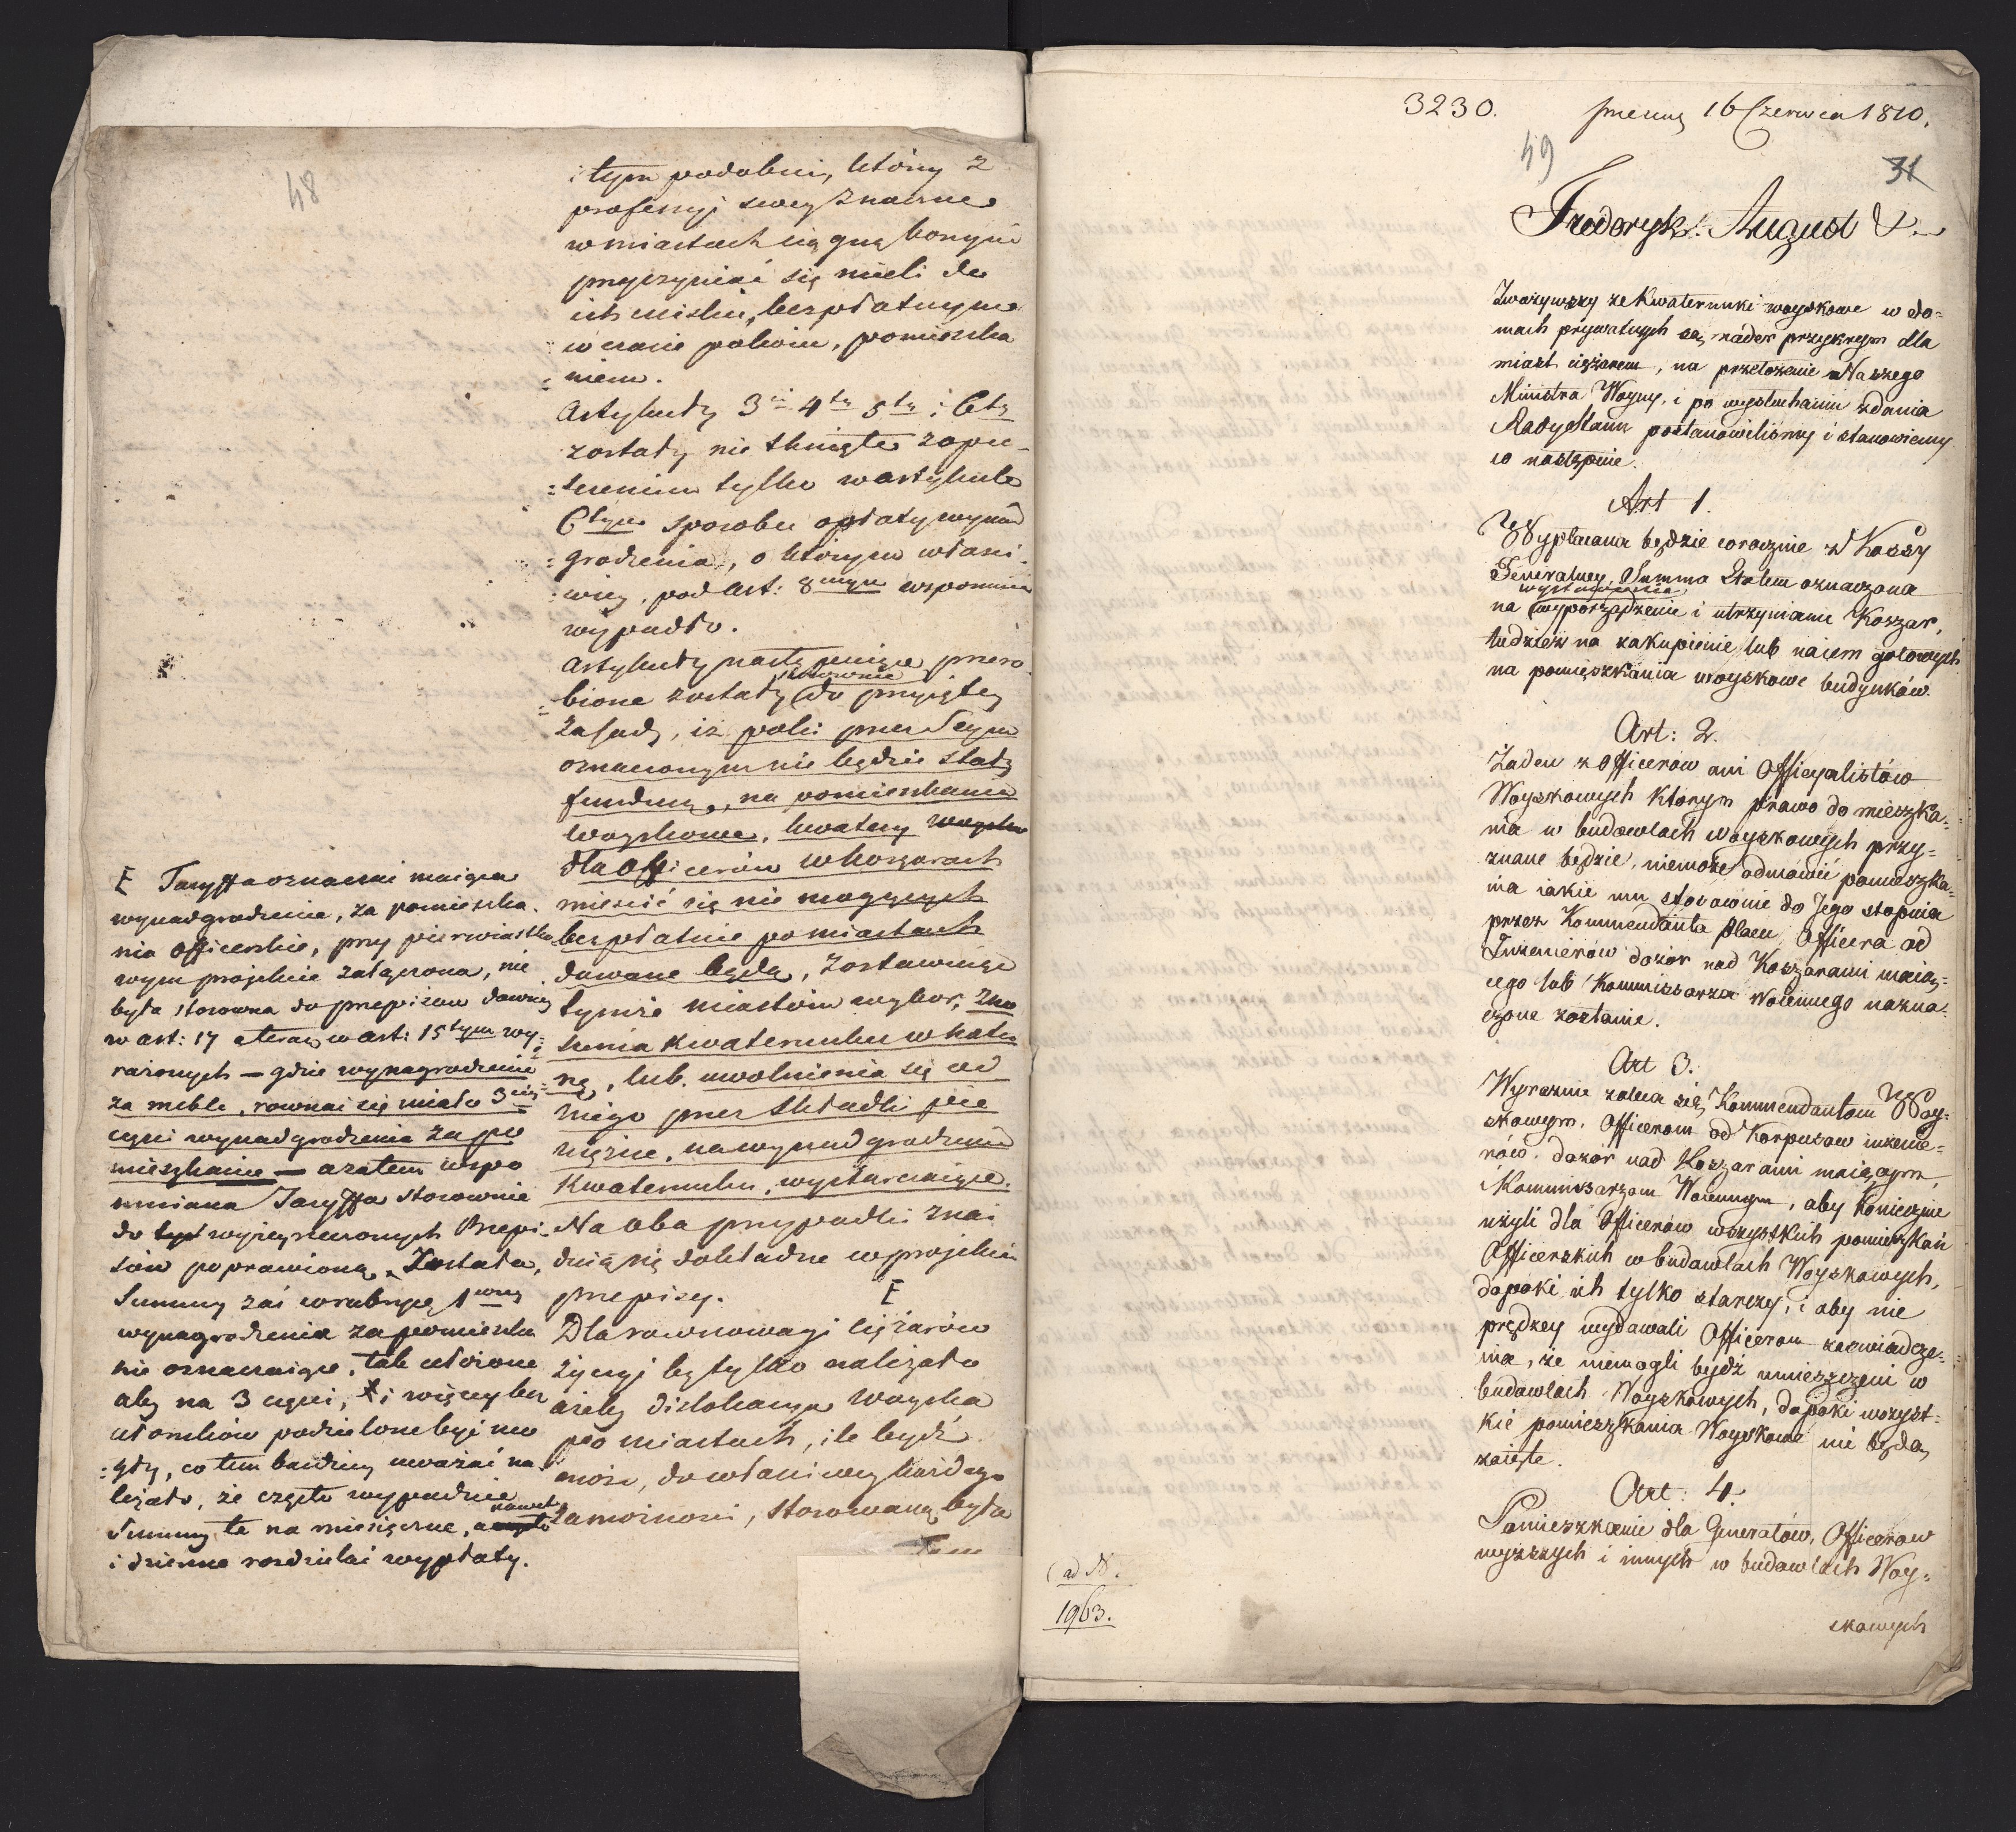 48
i tym podobni, którzy z
professyi swey znaczne
w miastach ciągną korzyści
przyczyniać się mieli do
ich bezpłatnym
w czasie pokoiu, pomieszka
niem.
Artykuły 3ci 4ty 5ty i 6ty
zostały nie tknięte zopu=
=szczeniem tylko w artykule
6tym sposobu opłaty wynad
=grodzenia, o którym właści
=wiey, pod Art: 8mym wspomnieć
wypadło.
Artykuły następuiące przero
=bione zostały stosownie do przyiętey
zasady, iż póki przez Seym
oznaczonym nie będzie stały
fundusz, na pomieszkania
Woyskowe, kwatery
dla Officerów w koszarach
mieścić się nie mogących
bezpłatnie po miastach
dawane będą, zostawuiąc
tymże miastom wybor, zno
szenia kwaterunku w natu
=rze, lub uwolnienia się od
niego przez składki pie
niężne, na wynadgrodzenie
kwaterunku, wystarczaiące.
Na oba przypadki znai
duią się dokładne w projekcie
przepisy. E
Dla rownowagi ciężarów
życzyć by tylko należało
ażeby dislokacya woyska
po miastach, ile bydź
może, do właściwey każdego
zamożności, stosowaną była
Tem
E Taryffa oznaczać maiąca
wynadgrodzenie, za pomieszka
nia Officerskie, przy pierwiastko
wym projekcie załączona, nie
była stosowna do przepisow dawniey
w art: 17 a teraz w art: 15tym wy=
rażonych — gdzie wynagrodzenie
za meble, rownać się miało 3ciey
części wynadgrodzenia za po
mieszkanie — a zatem wspo
mniana Taryffa stosownie
do wyżey rzeczonych Przepi
sów poprawioną została,
Summy zaś w rubryce 1wszey
wynagrodzenia za pomieszka
nie oznaczaiące, tak ułożone
aby na 3 części, i więcey bez
ułomków podzielone być mo
=gły, co tem bardziey uważać na
leżało, że często wypadnie
Summy te na miesięczne, a nawet
i dzienne rozdzielać wypłaty.
3230. 16 Czerwca 1810.
49
31
Fryderyk August &
Zważywszy że Kwaterunki woyskowe w do=
mach prywatnych są nader przykrym dla
miast ciężarem, na przełożenie Naszego
Ministra Woyny, i po wysłuchaniu zdania
Rady Stanu postanowiliśmy i stanowiemy
co następuie.
Art 1.
Wypłacana będzie corocznie z Kassy
Generalney, Summa Etatem oznaczona
na wyporządzenie i utrzymanie Koszar,
tudzież na zakupienie lub naiem gotowych
na pomieszkania woyskowe budynków.
Art: 2.
Żaden z Officerow ani Officyalistów
Woyskowych którym prawo do mieszka=
nia w budowlach woyskowych przy=
znane będzie, niemoże odmówić pomieszka=
nia iakie mu stosownie do Jego stopnia
przez Kommendanta Placu, Officera od
Inżenierów dozór nad Koszarami maią=
cego lub Kommissarza Woiennego nazna=
czone zostanie.
Art 3.
Wyraznie zaleca się Kommendantom Woy=
skowym, Officerom od Korpusow inżenie=
rów dozór nad Koszarami maiącym,
i Kommissarzom Woiennym, aby koniecznie
użyli dla Officerów wszystkich pomieszkań
Officerskich w budowlach Woyskowych,
dopoki ich tylko starczy, i aby nie
prędzey wydawali Officerom zaswiadcze=
nia, że niemogli bydź umieszczeni w
budowlach Woyskowych, dopóki wszyst=
kie pomieszkania Woyskowe nie będą
zaięte.
Art: 4.
Pomieszkanie dla Generałów, Officerow
wyższych i innych w budowlach Woy=
skowych
ad N.
1963.